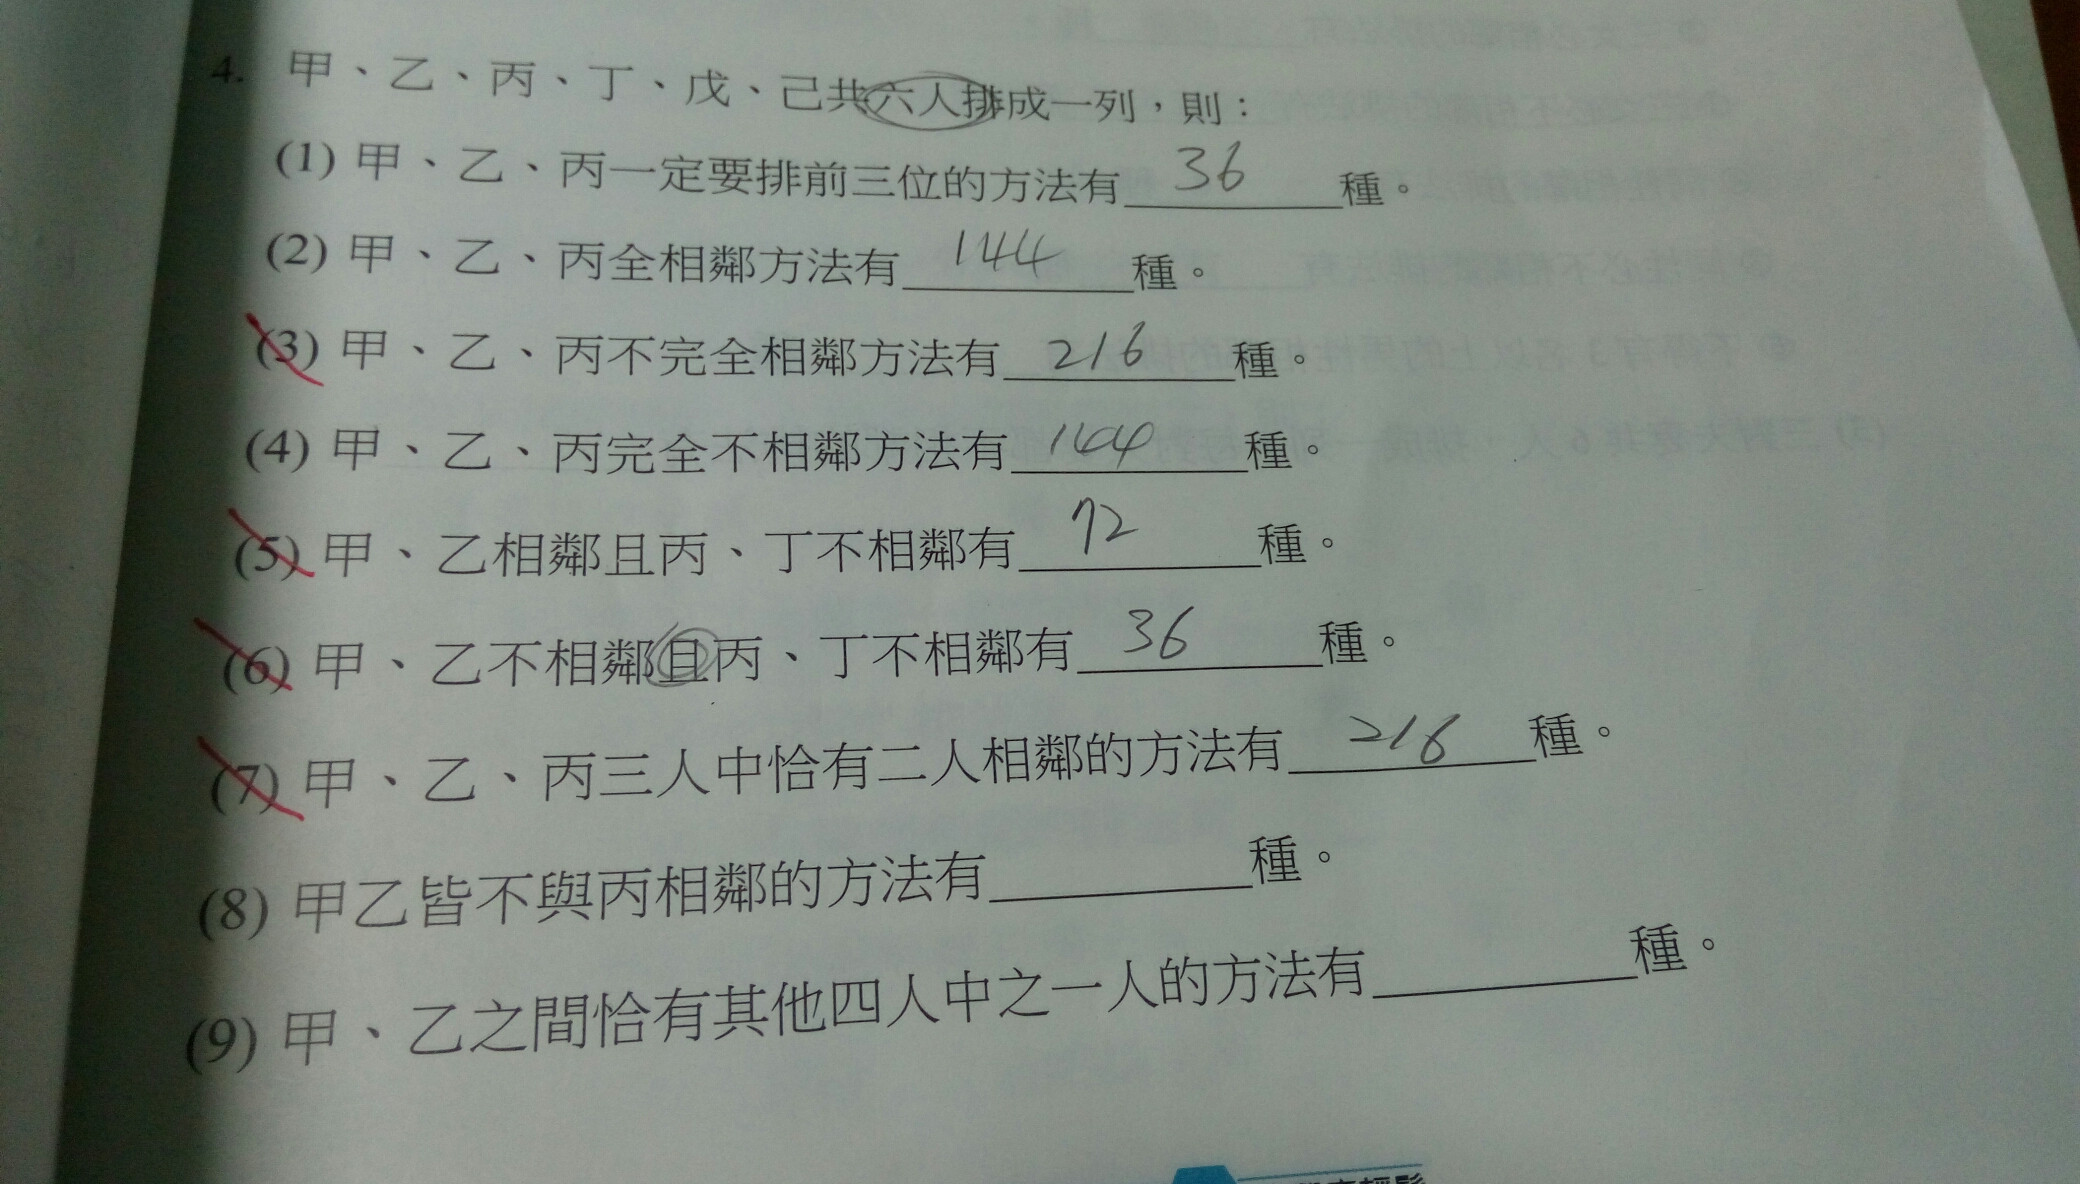 4. 甲、乙、丙、丁、戊、己共六人排成一列，則：
(1) 甲、乙、丙一定要排前三位的方法有 36 種。
(2) 甲、乙、丙全相鄰方法有 144 種。
(3) 甲、乙、丙不完全相鄰方法有 216 種。
(4) 甲、乙、丙完全不相鄰方法有 144 種。
(5) 甲、乙相鄰且丙、丁不相鄰有 72 種。
(6) 甲、乙不相鄰且丙、丁不相鄰有 36 種。
(7) 甲、乙、丙三人中恰有二人相鄰的方法有 216 種。
(8) 甲乙皆不與丙相鄰的方法有 種。
(9) 甲、乙之間恰有其他四人中之一人的方法有 種。